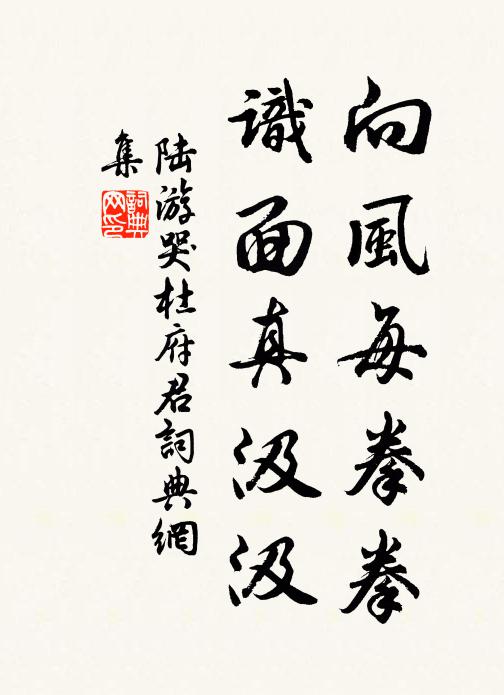 向風每拳拳
識面真汲汲
陸游哭杜府君詞典網
集
詞典
网印